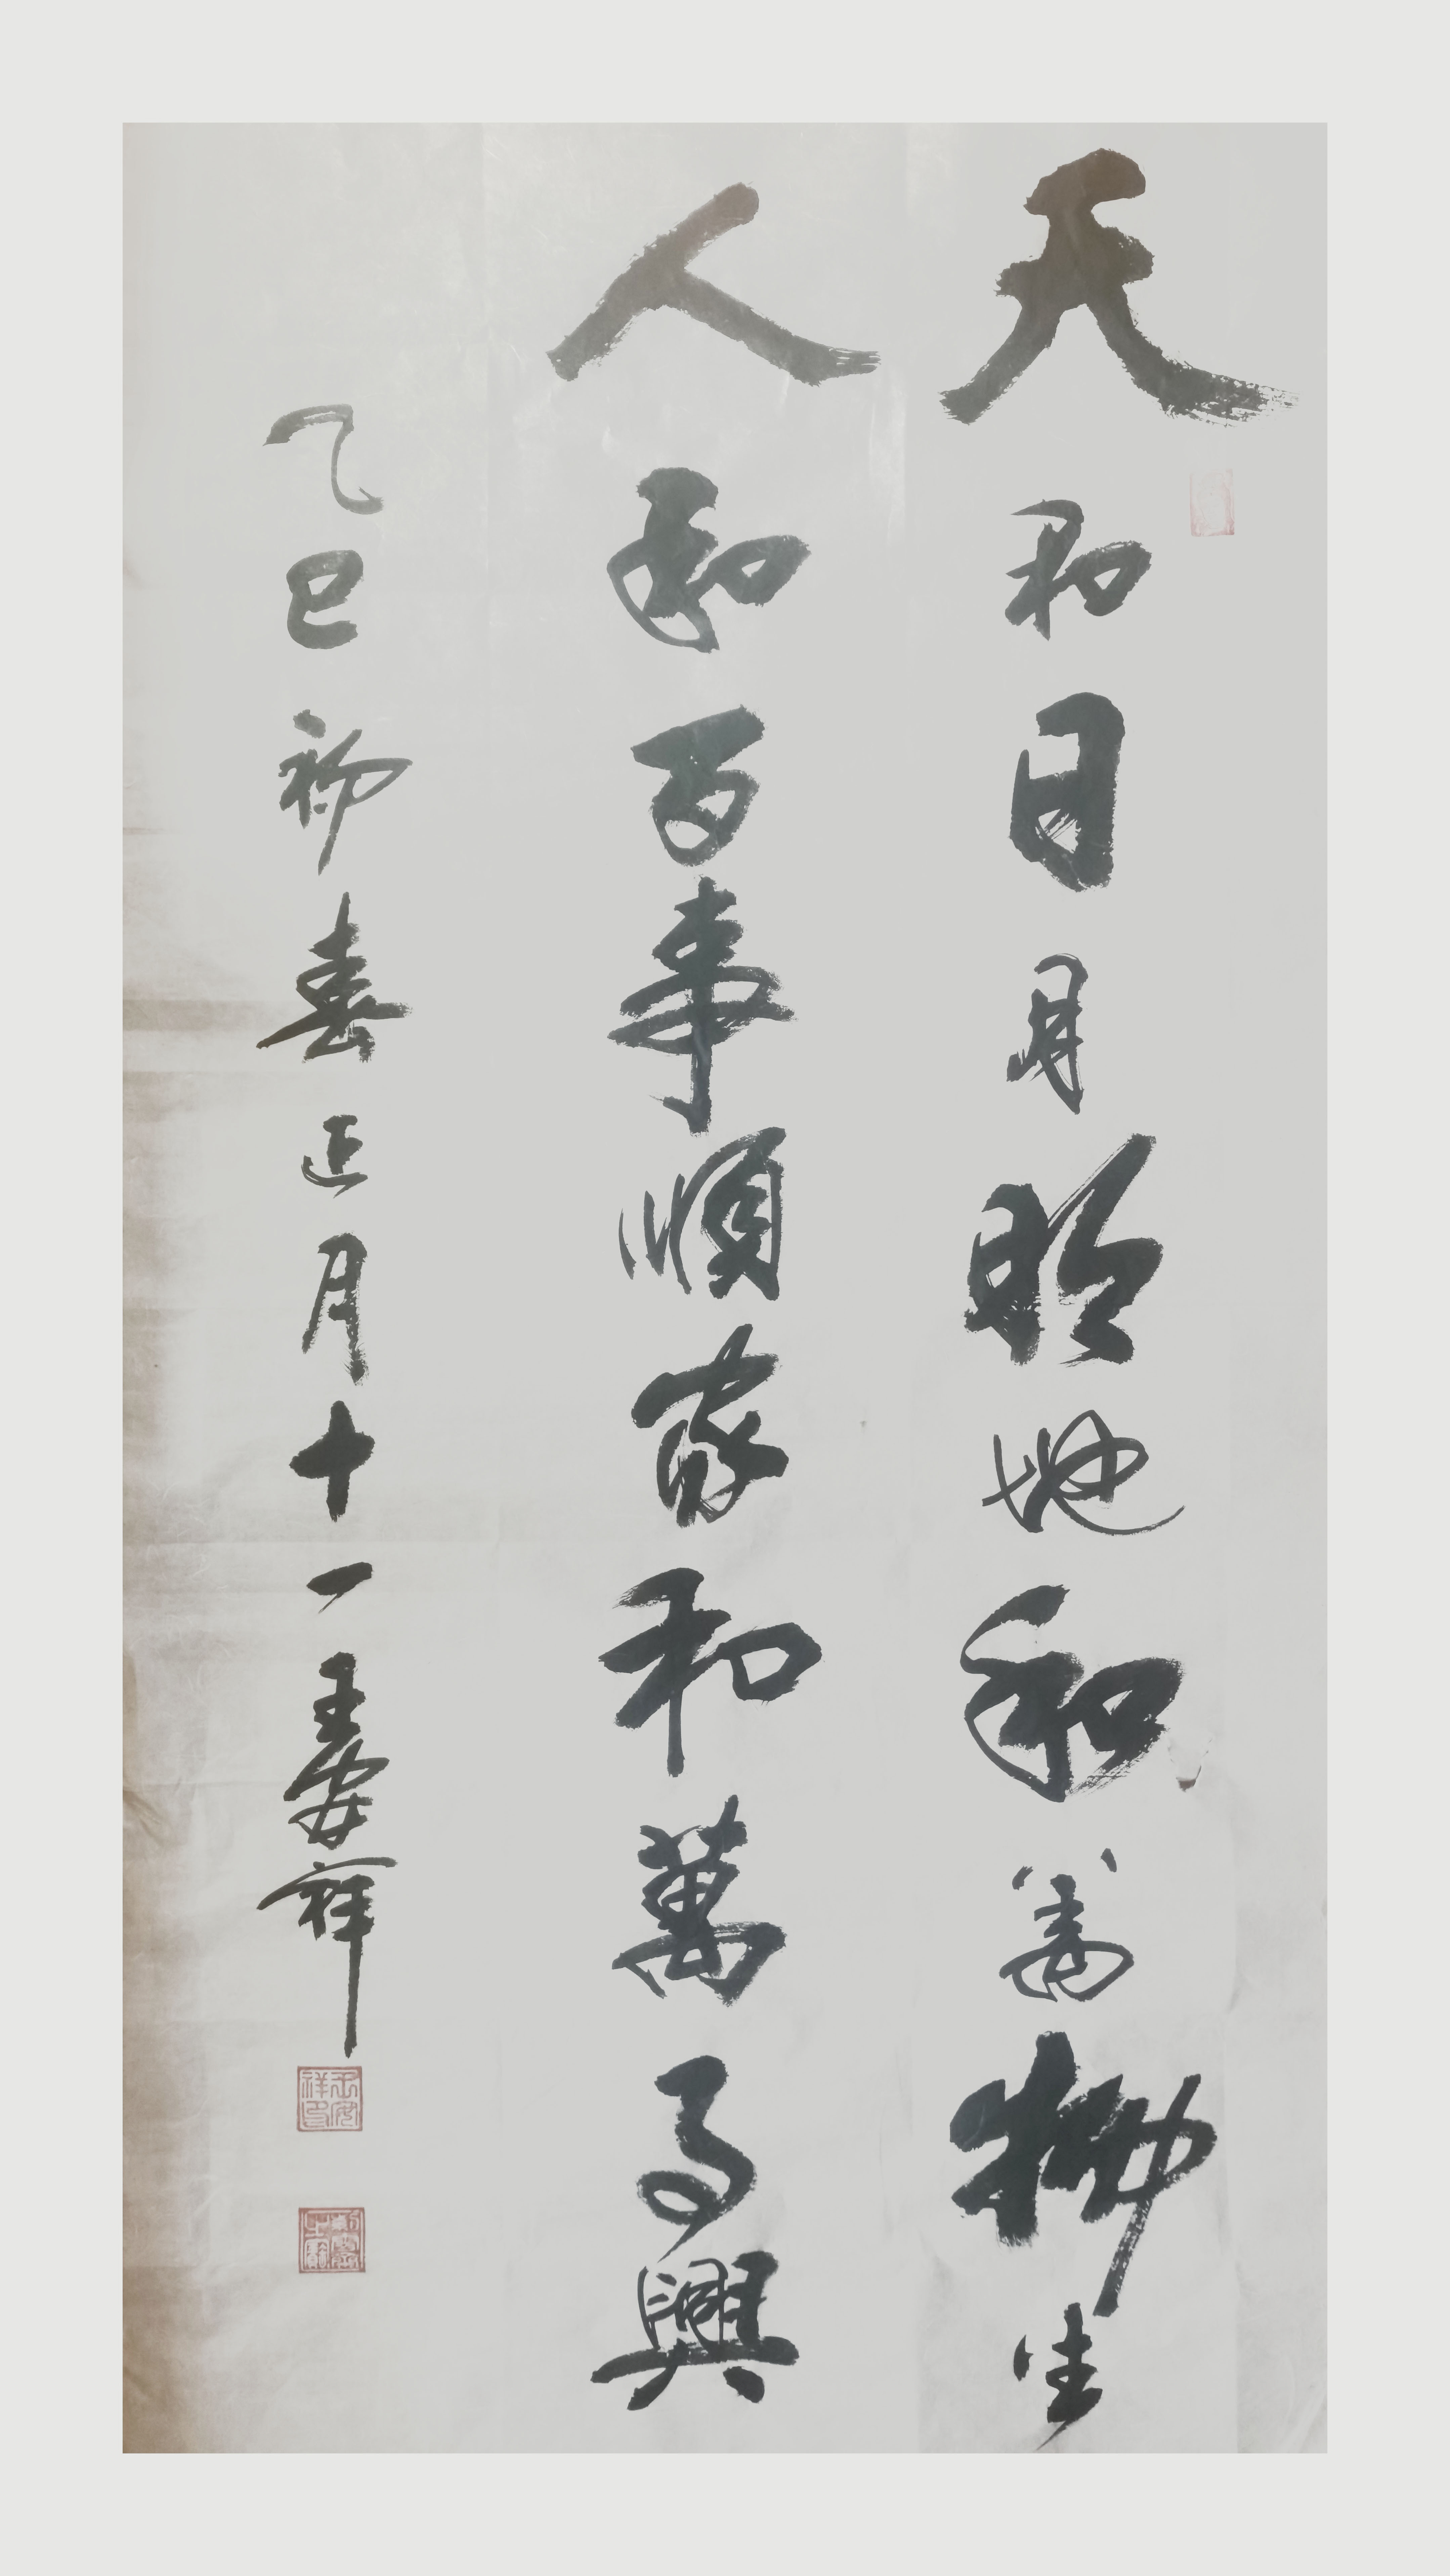 天和日月明地和萬物生
人和百事順家和萬事興
乙巳初春正月十一王安祥
王安祥印